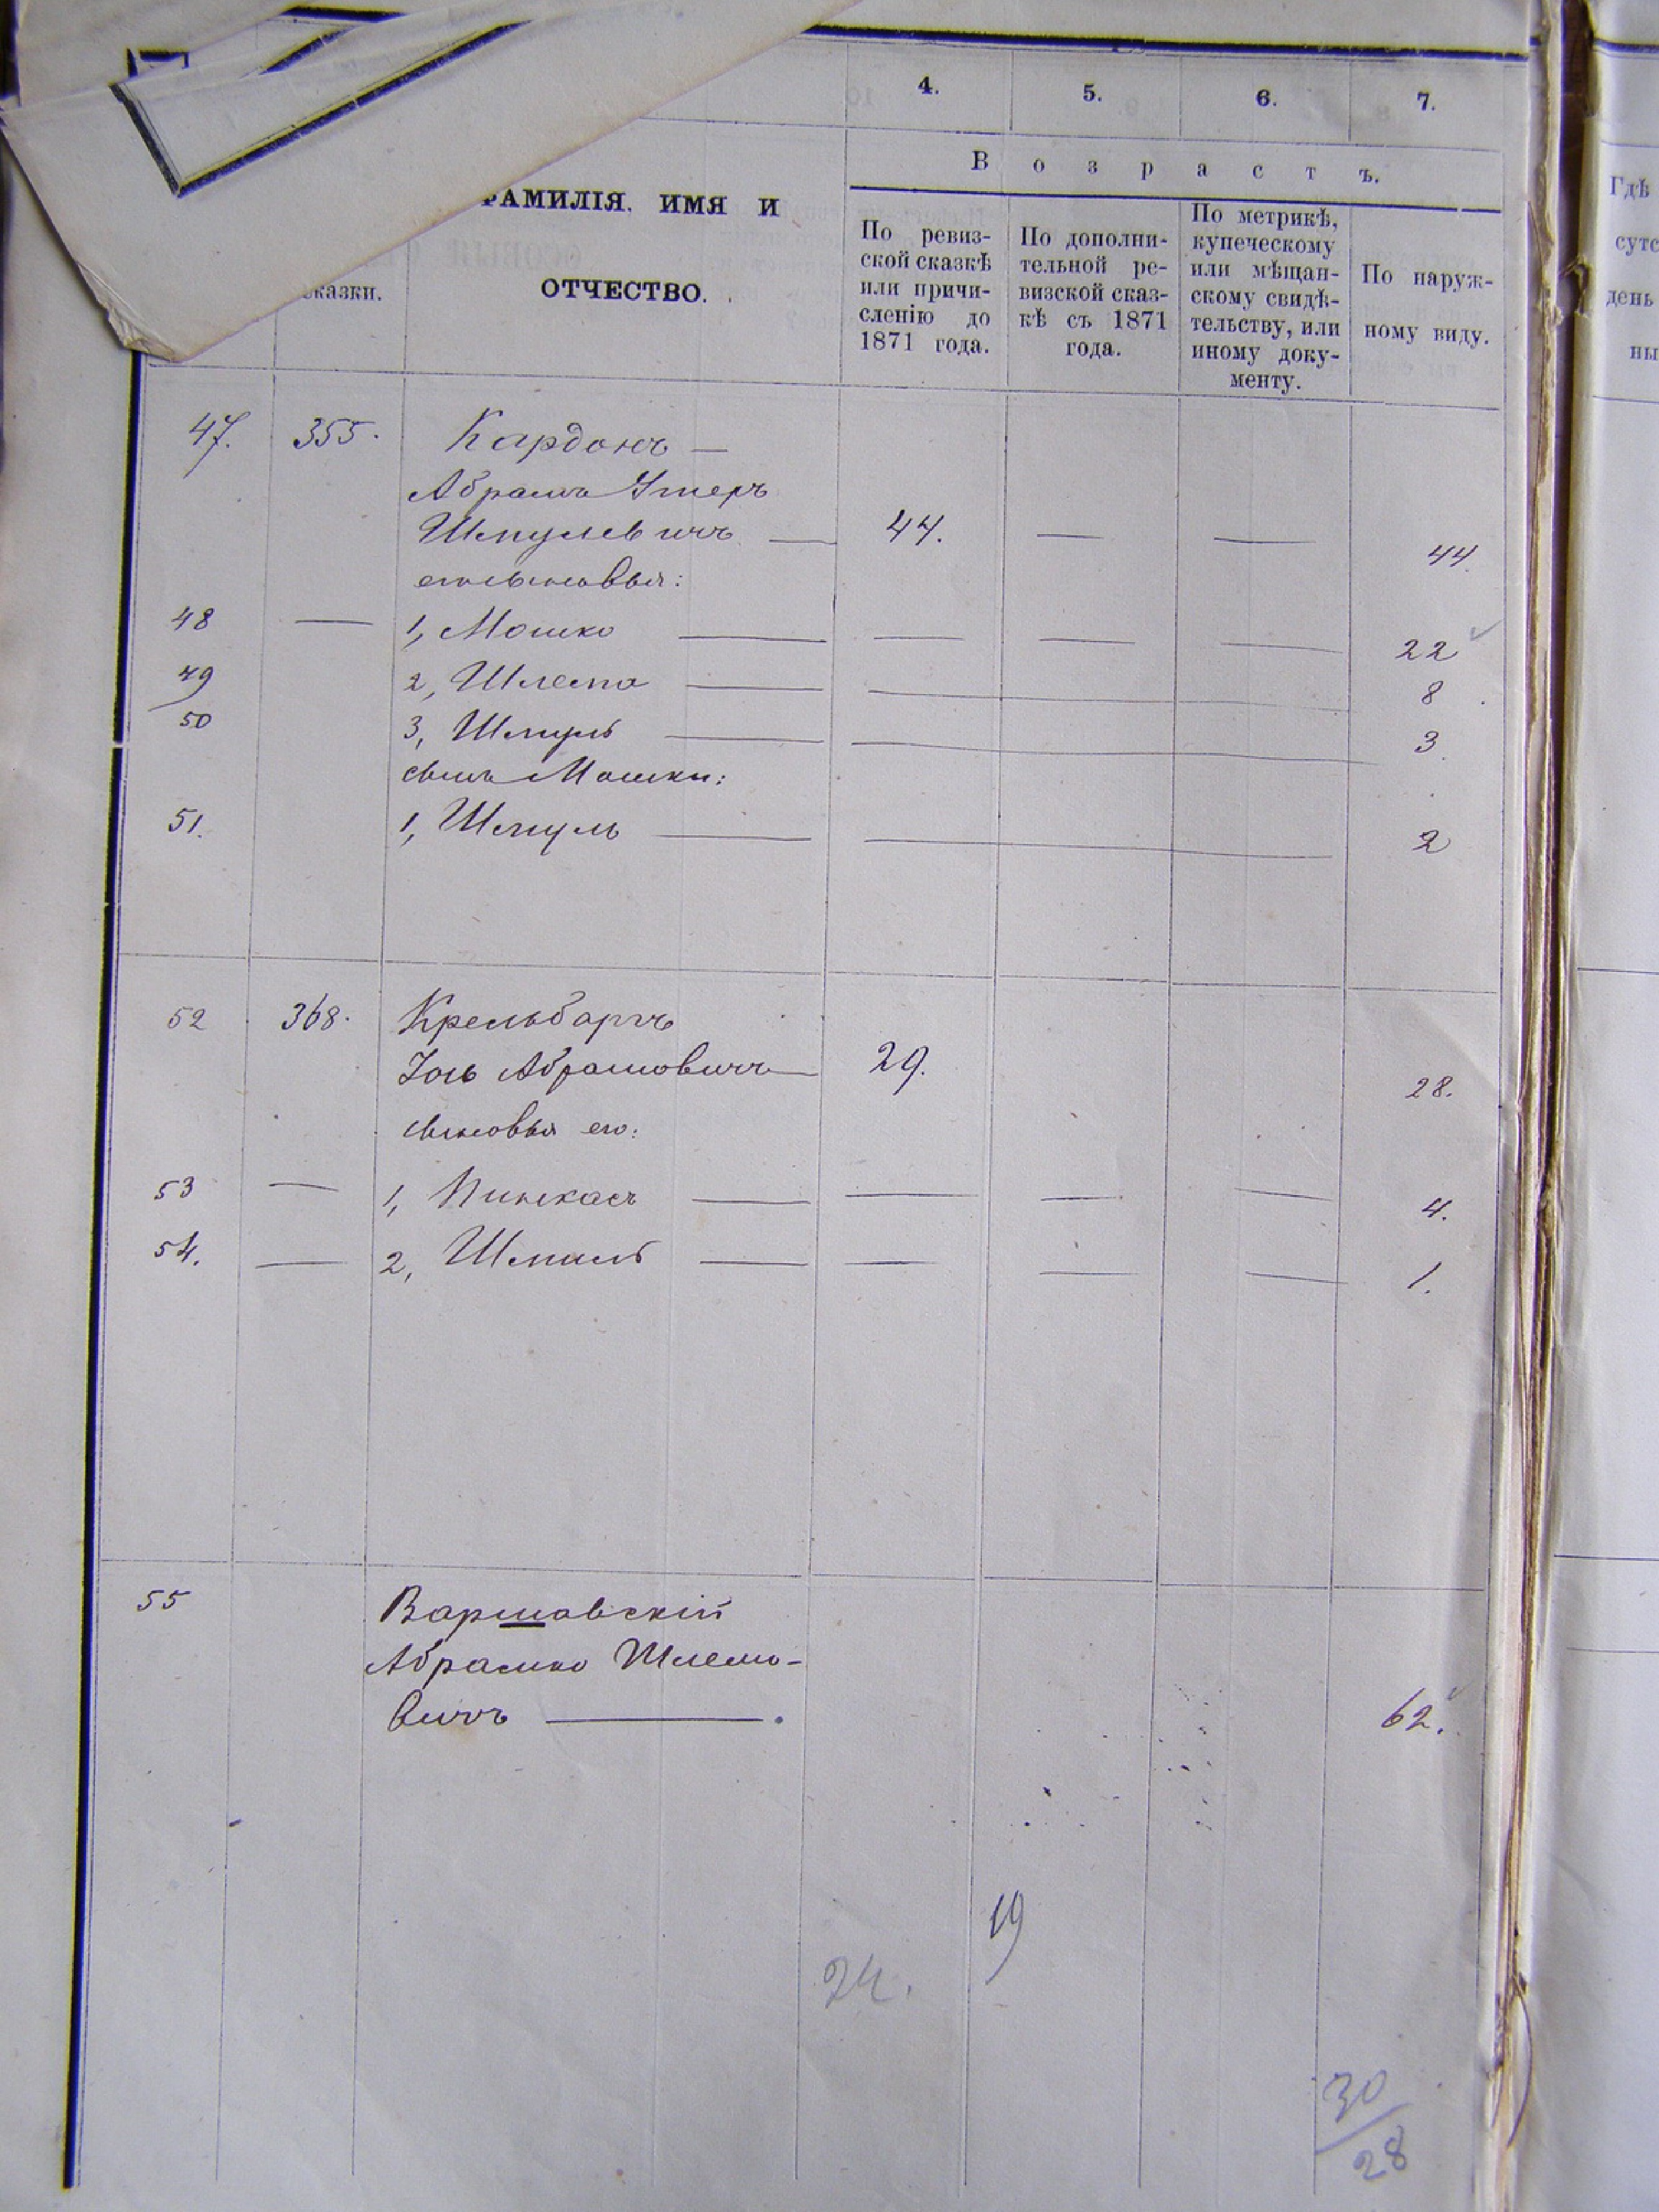 4. 5. 6. 7.
Возрастъ.
ФАМИЛІЯ, ИМЯ И
ОТЧЕСТВО.
сказки.
По ревиз-
ской сказкѣ
или причи-
сленію до
1871 года.
По дополни-
тельной ре-
визской сказ-
кѣ съ 1871
года.
По метрикѣ,
купеческому
или мѣщан-
скому свидѣ-
тельству, или
иному доку-
менту.
По наруж-
ному виду.
Гдѣ
сутс
день
ны
47. 355. Кардонъ —
Абрамъ Умеръ
Шмулевичъ — 44. — — 44.
его сыновья:
48 — 1, Мошко — — — — 22
49 2, Шлема — — 8
50 3, Шмуль — — 3
сынъ Мошки:
51. 1, Шмуль — — 2
52 368. Крельбаргъ
Іось Абрамовичъ — 29. 28.
сыновья его:
53 — 1, Пинкасъ — — — — 4.
54. — 2, Шмиль — — — — 1.
55 Варшавскій
Абрамко Шлемо-
вичъ — 62.
19
24.
30
28